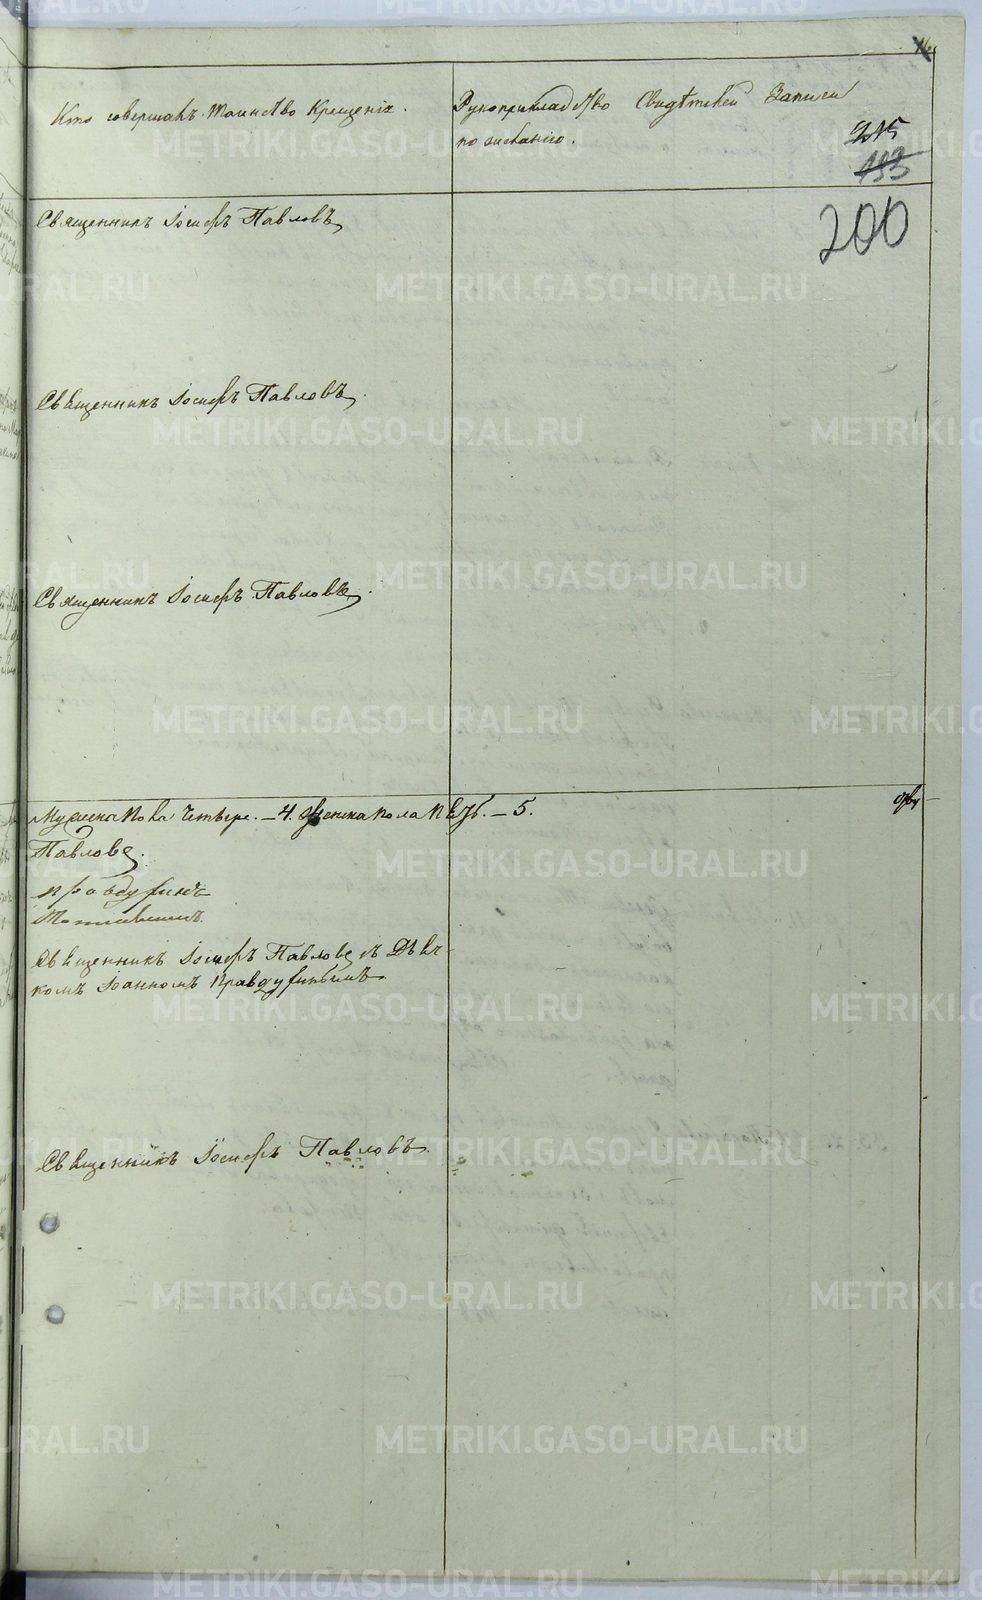 Кто совершалъ Таинство Крещенія.
Рукоприкладство Свидѣтелей Записи
по желанію.
215
193
200
Священникъ Іосифъ Павловъ
Священникъ Іосифъ Павловъ.
Священникъ Іосифъ Павловъ.
Мужеска пола Четыре. — 4. Женска пола пять. — 5.
Павловъ.
Правдухинъ
Священникъ Іосифъ Павловъ съ Дьяч-
комъ Іоанномъ Правдухинымъ
Священникъ Іосифъ Павловъ.
METRIKI.GASO-URAL.RU